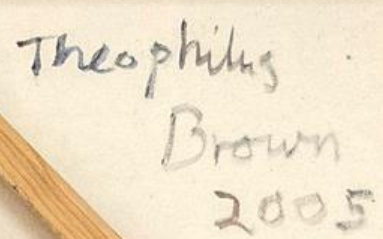 Theophilus
Brown
2005